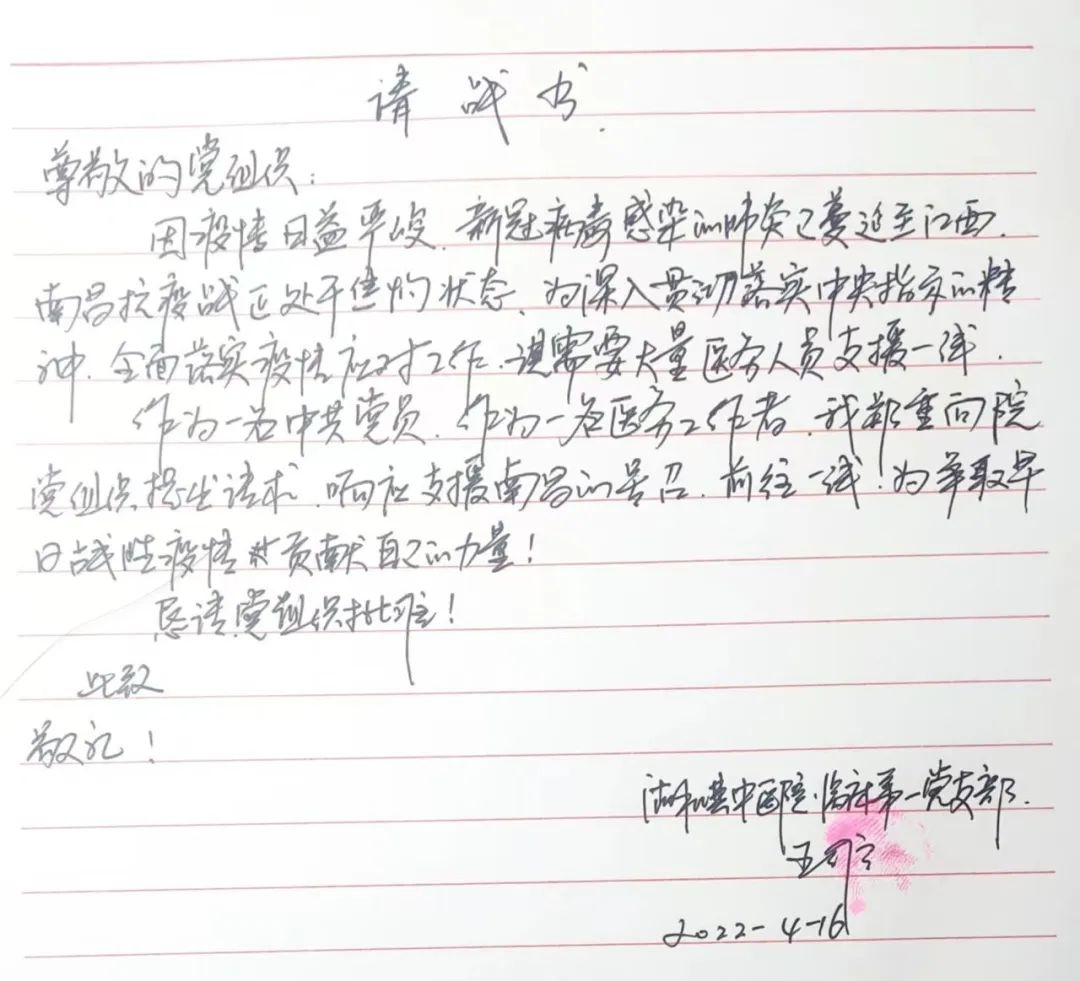 请战书.
尊敬的党组织:
因疫情日益严峻,新冠病毒感染的肺炎已蔓延至江西.
南昌抗疫战正处于焦灼状态,为深入贯彻落实中央指示的精
神,全面落实疫情应对工作,现需要大量医务人员支援一线.
作为一名中共党员,作为一名医务工作者,我郑重向院
党组织提出请求,响应支援南昌的号召,前往一线!为争取早
日战胜疫情贡献自己的力量!
恳请党组织批准!
此致
敬礼!
中医院临床第一党支部.
王
2022-4-16